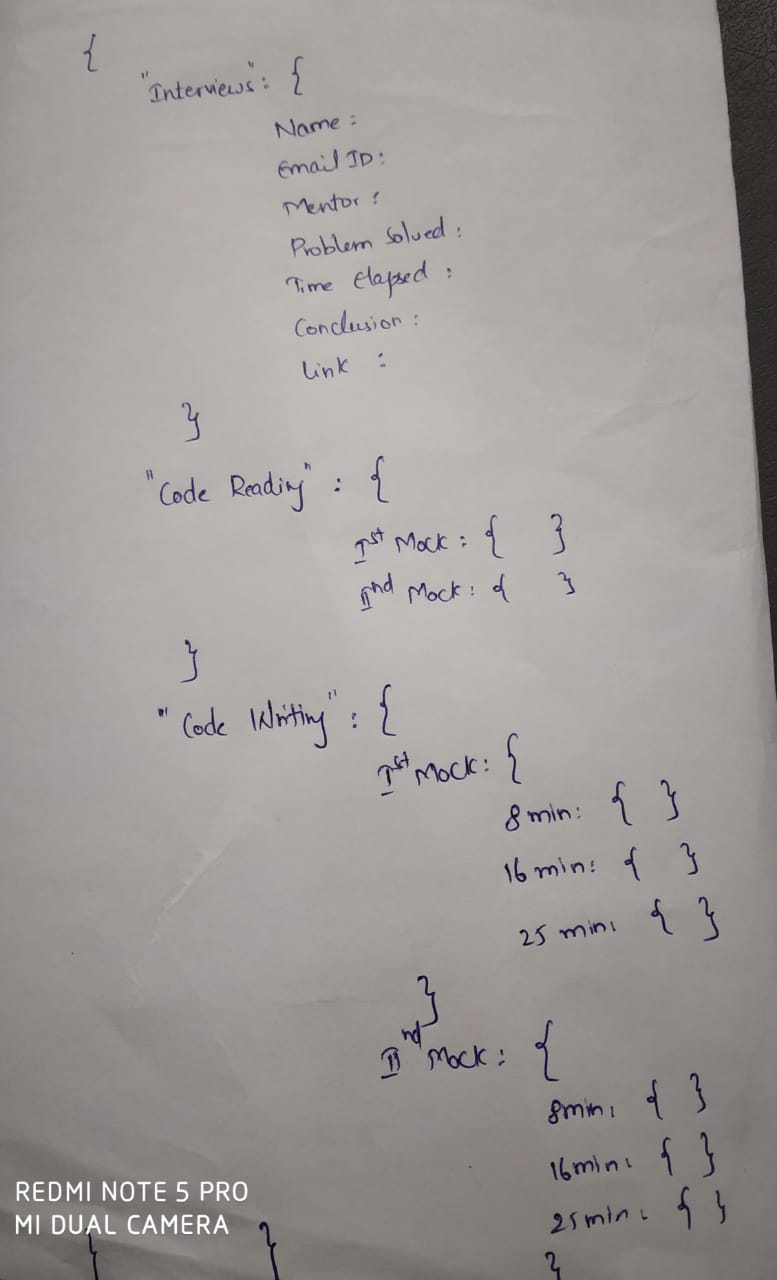 {
"Interviews": {
Name:
Email ID:
Mentor:
Problem Solved:
Time Elapsed:
Conclusion:
Link :
}
"Code Reading" : {
Ist Mock: { }
IInd Mock: { }
}
"Code Writing" : {
Ist Mock: {
8 min: { }
16 min: { }
25 min: { }
}
IInd Mock: {
8min: { }
16min: { }
25min: { }
}
} }
REDMI NOTE 5 PRO
MI DUAL CAMERA